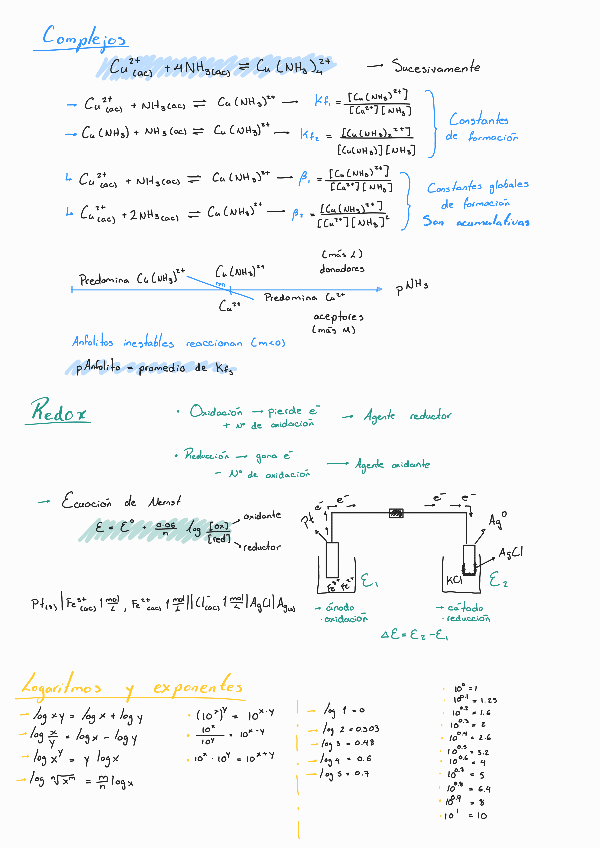 Complejos
Cu²⁺(ac) + 4NH₃(ac) ⇌ Cu(NH₃)₄²⁺ → Sucesivamente
→ Cu²⁺(ac) + NH₃(ac) ⇌ Cu(NH₃)²⁺ → Kf₁ = [Cu(NH₃)²⁺] / [Cu²⁺][NH₃]
→ Cu(NH₃) + NH₃(ac) ⇌ Cu(NH₃)²⁺ → Kf₂ = [Cu(NH₃)₂²⁺] / [Cu(NH₃)][NH₃]
Constantes
de formación
↳ Cu²⁺(ac) + NH₃(ac) ⇌ Cu(NH₃)²⁺ → β₁ = [Cu(NH₃)²⁺] / [Cu²⁺][NH₃]
↳ Cu²⁺(ac) + 2NH₃(ac) ⇌ Cu(NH₃)²⁺ → β₂ = [Cu(NH₃)²⁺] / [Cu²⁺][NH₃]²
Constantes globales
de formación
Son acumulativas
(más L)
donadores
Predomina Cu(NH₃)²⁺
Cu(NH₃)²⁺
pNH₃
Cu²⁺
Predomina Cu²⁺
aceptores
(más M)
Anfolitos inestables reaccionan (m<0)
pAnfolito = promedio de Kfs
Redox
• Oxidación → pierde e⁻ → Agente reductor
+ Nº de oxidación
• Reducción → gana e⁻ → Agente oxidante
− Nº de oxidación
→ Ecuación de Nernst
ε = ε° + 0.06/n log [ox]/[red]
oxidante
reductor
e⁻ e⁻ e⁻ e⁻
Pt
Ag⁰
AgCl
KCl
Fe³⁺ Fe²⁺
ε₁
ε₂
→ ánodo
· oxidación
→ cátodo
· reducción
Δε = ε₂ − ε₁
Pt(s) | Fe³⁺(ac) 1 mol/L, Fe²⁺(ac) 1 mol/L || Cl⁻(ac) 1 mol/L | AgCl | Ag(s)
Logaritmos y exponentes
− log xy = log x + log y
− log x/y = log x − log y
− log xʸ = y log x
− log ⁿ√xᵐ = m/n log x
• (10ˣ)ʸ = 10ˣ·ʸ
• 10ˣ/10ʸ = 10ˣ⁻ʸ
• 10ˣ · 10ʸ = 10ˣ⁺ʸ
− log 1 = 0
− log 2 = 0.303
− log 3 = 0.48
− log 4 = 0.6
− log 5 = 0.7
• 10⁰ = 1
• 10^0.1 = 1.25
• 10^0.2 = 1.6
• 10^0.3 = 2
• 10^0.4 = 2.6
• 10^0.5 = 3.2
• 10^0.6 = 4
• 10^0.7 = 5
• 10^0.8 = 6.4
• 10^0.9 = 8
• 10¹ = 10